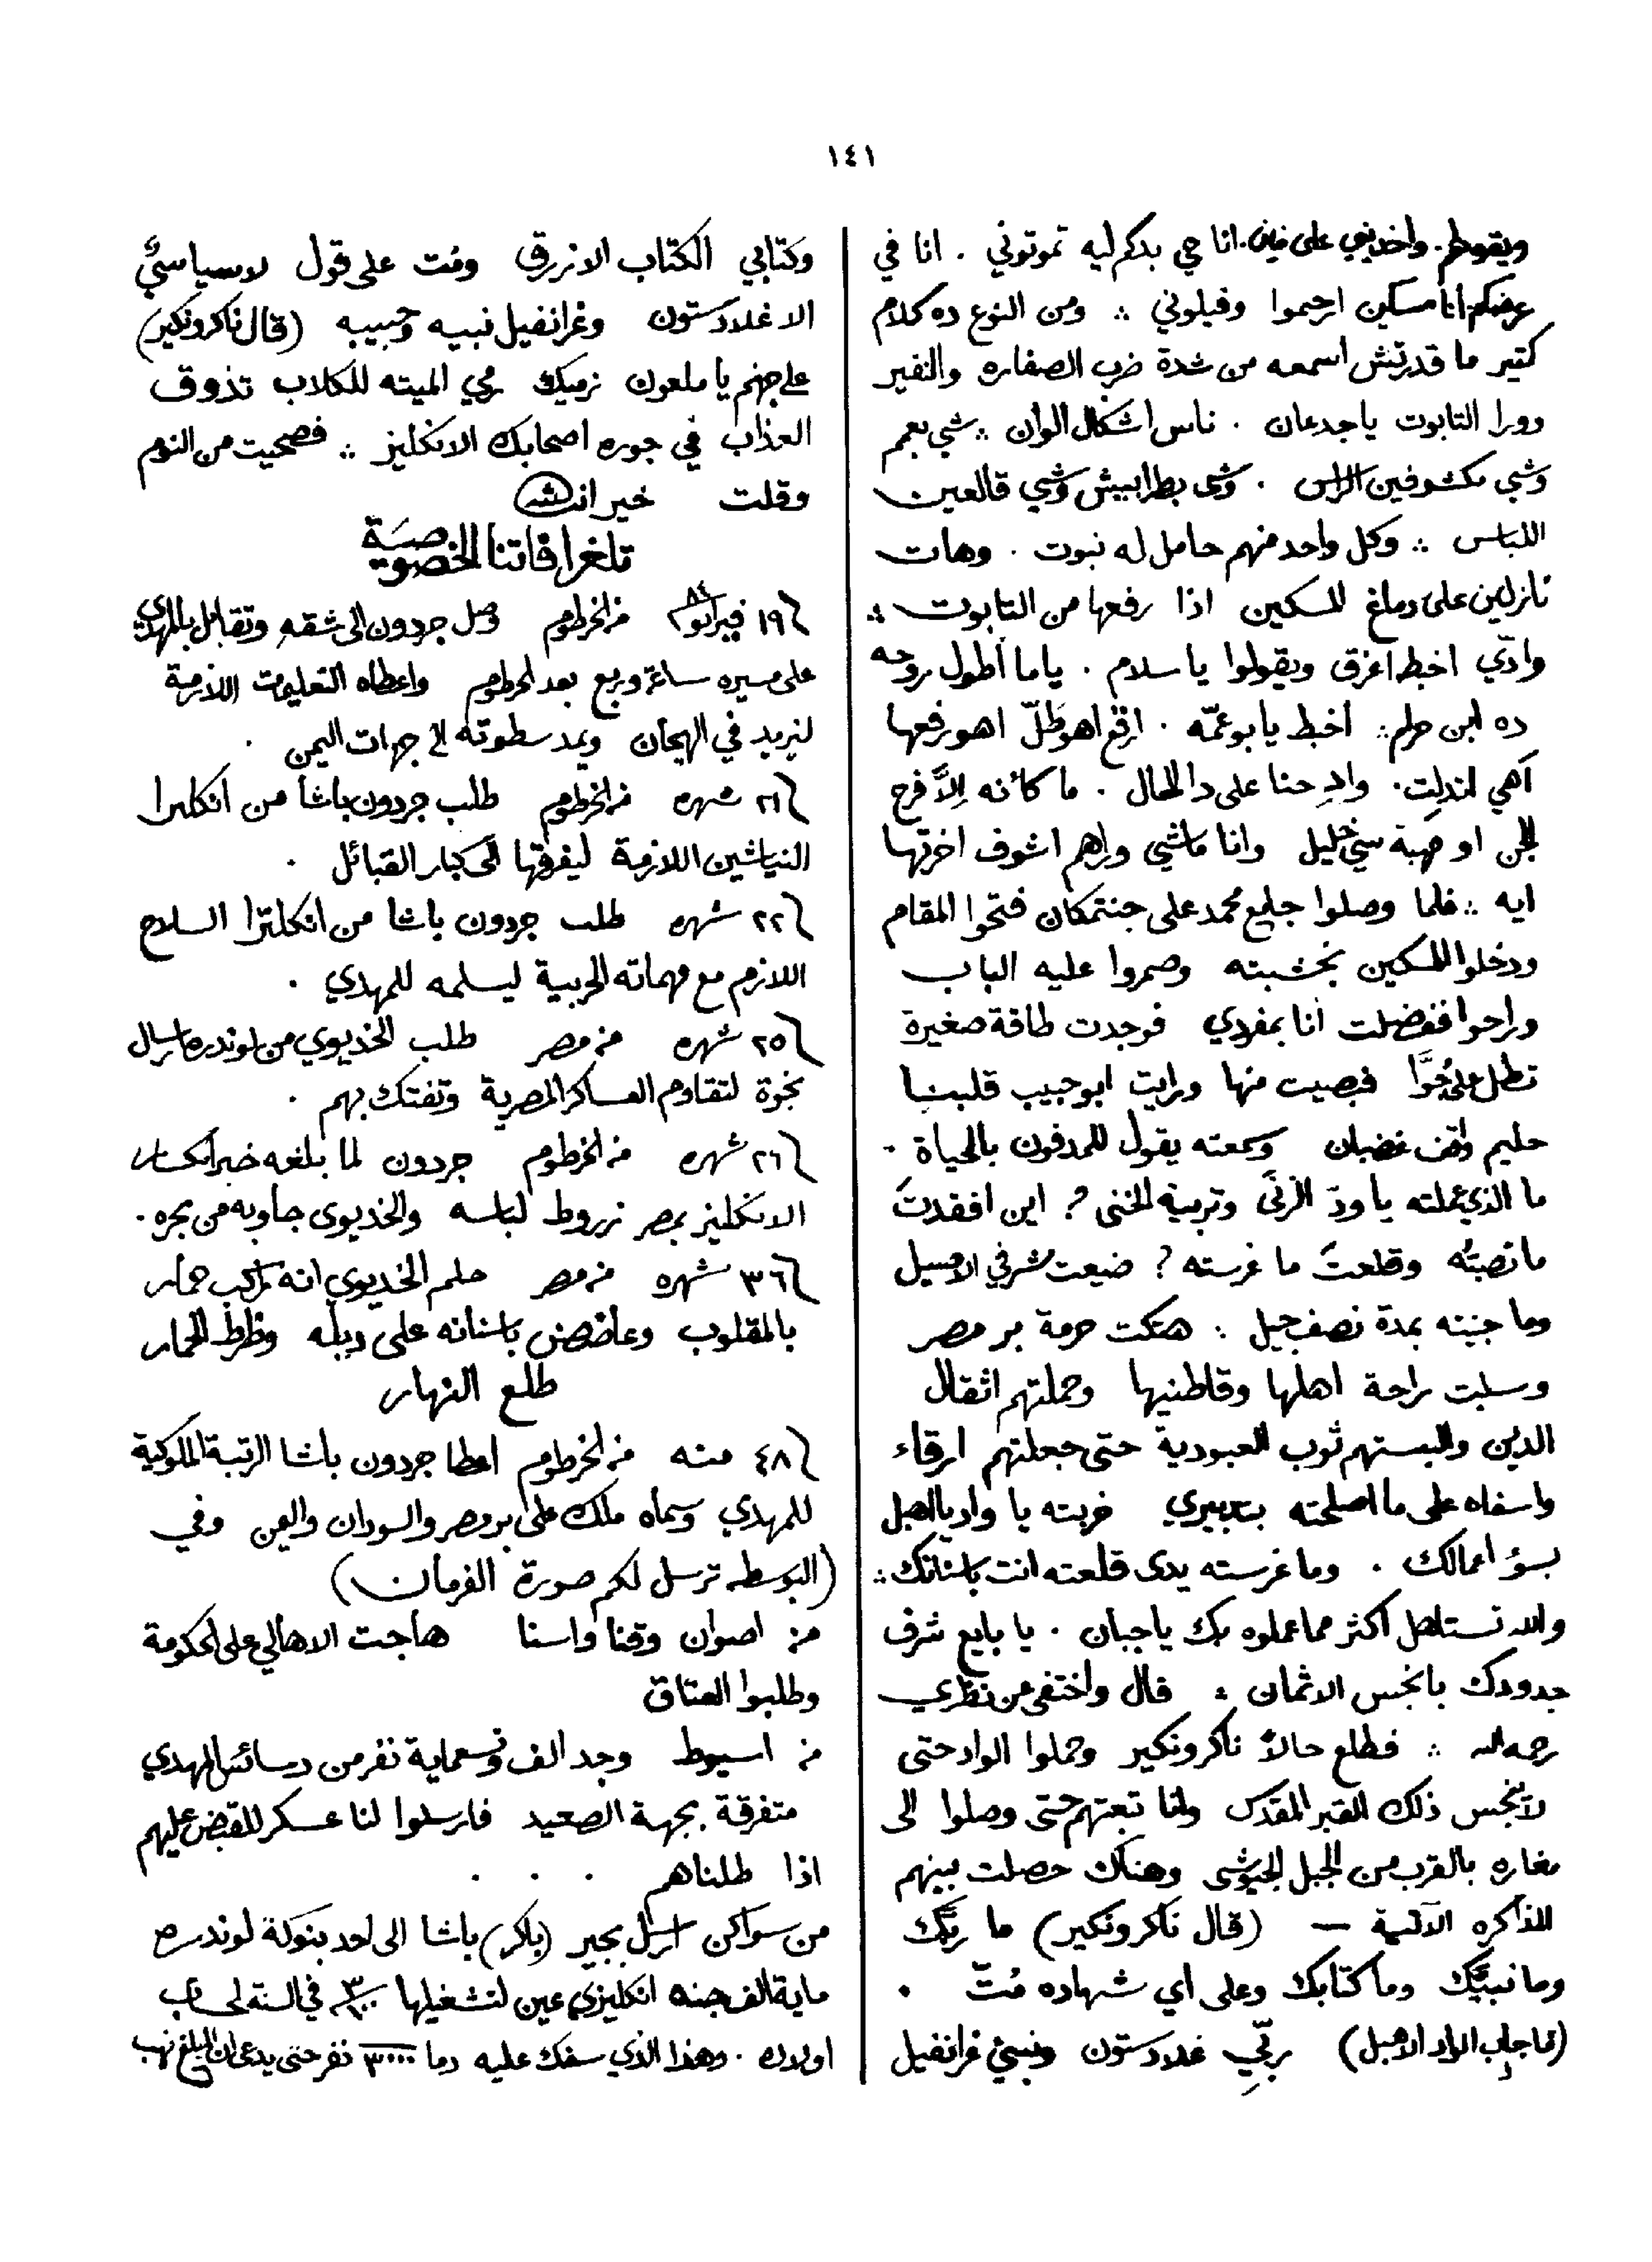 ١٤١
ويقولهم. واخديني على فين. انا حي بدكم ليه تموتوني . انا في
عرضكم انا مسكين ارحموا وفيلوني ؞ ومن النوع ده كلام
كتير ما قدرتش اسمعه من شدة ضرب الصفاره والنفير
وورا التابوت ياجدعان . ناس اشكال الوان ؞ شي بعمم
وشي مكشوفين الراس . وشي بطرابيش وشي قالعين
اللباس ؞ وكل واحد منهم حامل له نبوت . وهات
نازلين على دماغ المسكين اذا رفعها من التابوت ؞
وادّي اخبط اغزق ويقولوا ياسلام . ياما أطول روحه
ده ابن حرام ؞ اخبط يابو عمّه . ارقع اهو طلّ اهو رفعها
اهي اندلت . وادحنا على دا الحال . ما كانه إلاَّ فرح
للجن او صهبة سي خليل وانا ماشي وراهم اشوف اخرتها
ايه ؞ فلما وصلوا جامع محمد على جنتمكان فتحوا المقام
ودخلوا المسكين بخشبته وصمروا عليه الباب
وراحوا ففضلت أنا بمفردي فوجدت طاقة صغيرة
تطل على جُوَّا فبصيت منها ورايت ابو حبيب قلبنا
حليم واقف غضبان وسمعته يقول للمدفون بالحياة .
ما الذي عملته ياودّ الزنَى وتربية الخنى ? اين افقدتَ
ما نصبتُه وقلعتَ ما غرسته ? ضيعت شرفي الاصيل
وما جنيته بمدة نصف جيل ؞ هتكت حرمة بر مصر
وسلبت راحة اهلها وقاطنيها وحملتهم اثقال
الدين والبستهم ثوب العبودية حتى جعلتهم ارقاء
واسفاه على ما اصلحته بتدبيري خربته يا واد يا اهبل
بسؤ اعمالك . وما غرسته يدى قلعته انت باسنانك ؞
والله تستاهل اكثر مما عملوه بك ياجبان . يا بايع شرف
جدودك بانجس الاثمان ؞ قال واختفى من نظري
رحمه الله ؞ فطلع حالاً ناكر ونكير وحملوا الواد حتى
لا ينجس ذلك القبر المقدس وانا تبعتهم حتى وصلوا الى
مغاره بالقرب من الجبل الجيوشى وهناك حصلت بينهم
المذاكره الآتية — (قال ناكر ونكير) ما ربّك
وما نبيّك وما كتابك وعلى اي شهاده مُتّ .
(فاجاب الواد الاهبل) ربّي غلادستون ونبيّي غرانفيل
وكتابي الكتاب الازرق ومُت على قول لاسياسيٌّ
الا غلادستون وغرانفيل نبيه وحبيبه (قال ناكر ونكير)
على جهنم يا ملعون نرميك رمي الميته للكلاب تذوق
العذاب في جوره اصحابك الانكليز ؞ فصحيت من النوم
وقلت خير انشالله
تلغرافاتنا الخصوصية
١٩ فبرايو ٨٤ من الخرطوم وصل جردون الى شقه وتقابل بالمهدي
على مسيره ساعة وربع بعد الخرطوم واعطاه التعليمات اللازمة
ليزيد في الهيجان ويمد سطوته الى جهات اليمن .
٢١ شهره من الخرطوم طلب جردون باشا من انكلترا
النياشين اللازمة ليفرقها الى كبار القبائل .
٢٢ شهره طلب جردون باشا من انكلترا السلاح
اللازم مع مهماته الحربية ليسلمه للمهدي .
٢٥ شهره من مصر طلب الخديوي من لوندره ارسال
نجوة لتقاوم العساكر المصرية وتفتك بهم .
٢٦ شهره من الخرطوم جردون لما بلغه خبر انكسار
الانكليز بمصر نروط لباسه والخديوى جاوبه من بحره .
٣٦ شهره من مصر حلم الخديوي انه راكب حمار
بالمقلوب وعاضض باسنانه على ديله وظرط الحمار
طلع النهار
٤٨ منه من الخرطوم اعطا جردون باشا الرتبة الملوكية
للمهدي وسماه ملك على بر مصر والسودان واليمن وفي
(البوسطه ترسل لكم صورة الفرمان)
من اصوان وقنا واسنا هاجت الاهالي على الحكومة
وطلبوا العتاق
من اسيوط وجد الف وتسعماية نفر من دسائس المهدي
متفرقة بجهة الصعيد فارسلوا لنا عسكر للقبض عليهم
اذا طلناهم . . .
من سواكن ارسل بجير (باكر) باشا الى احد بنوكة لوندره
ماية الف جنيه انكليزي عين لتشغيلها في السنة لحساب
اولاده . وهذا الذي سفك عليه دما ٣٠٠٠ نفر حتى يدعى ان المبلغ نهب